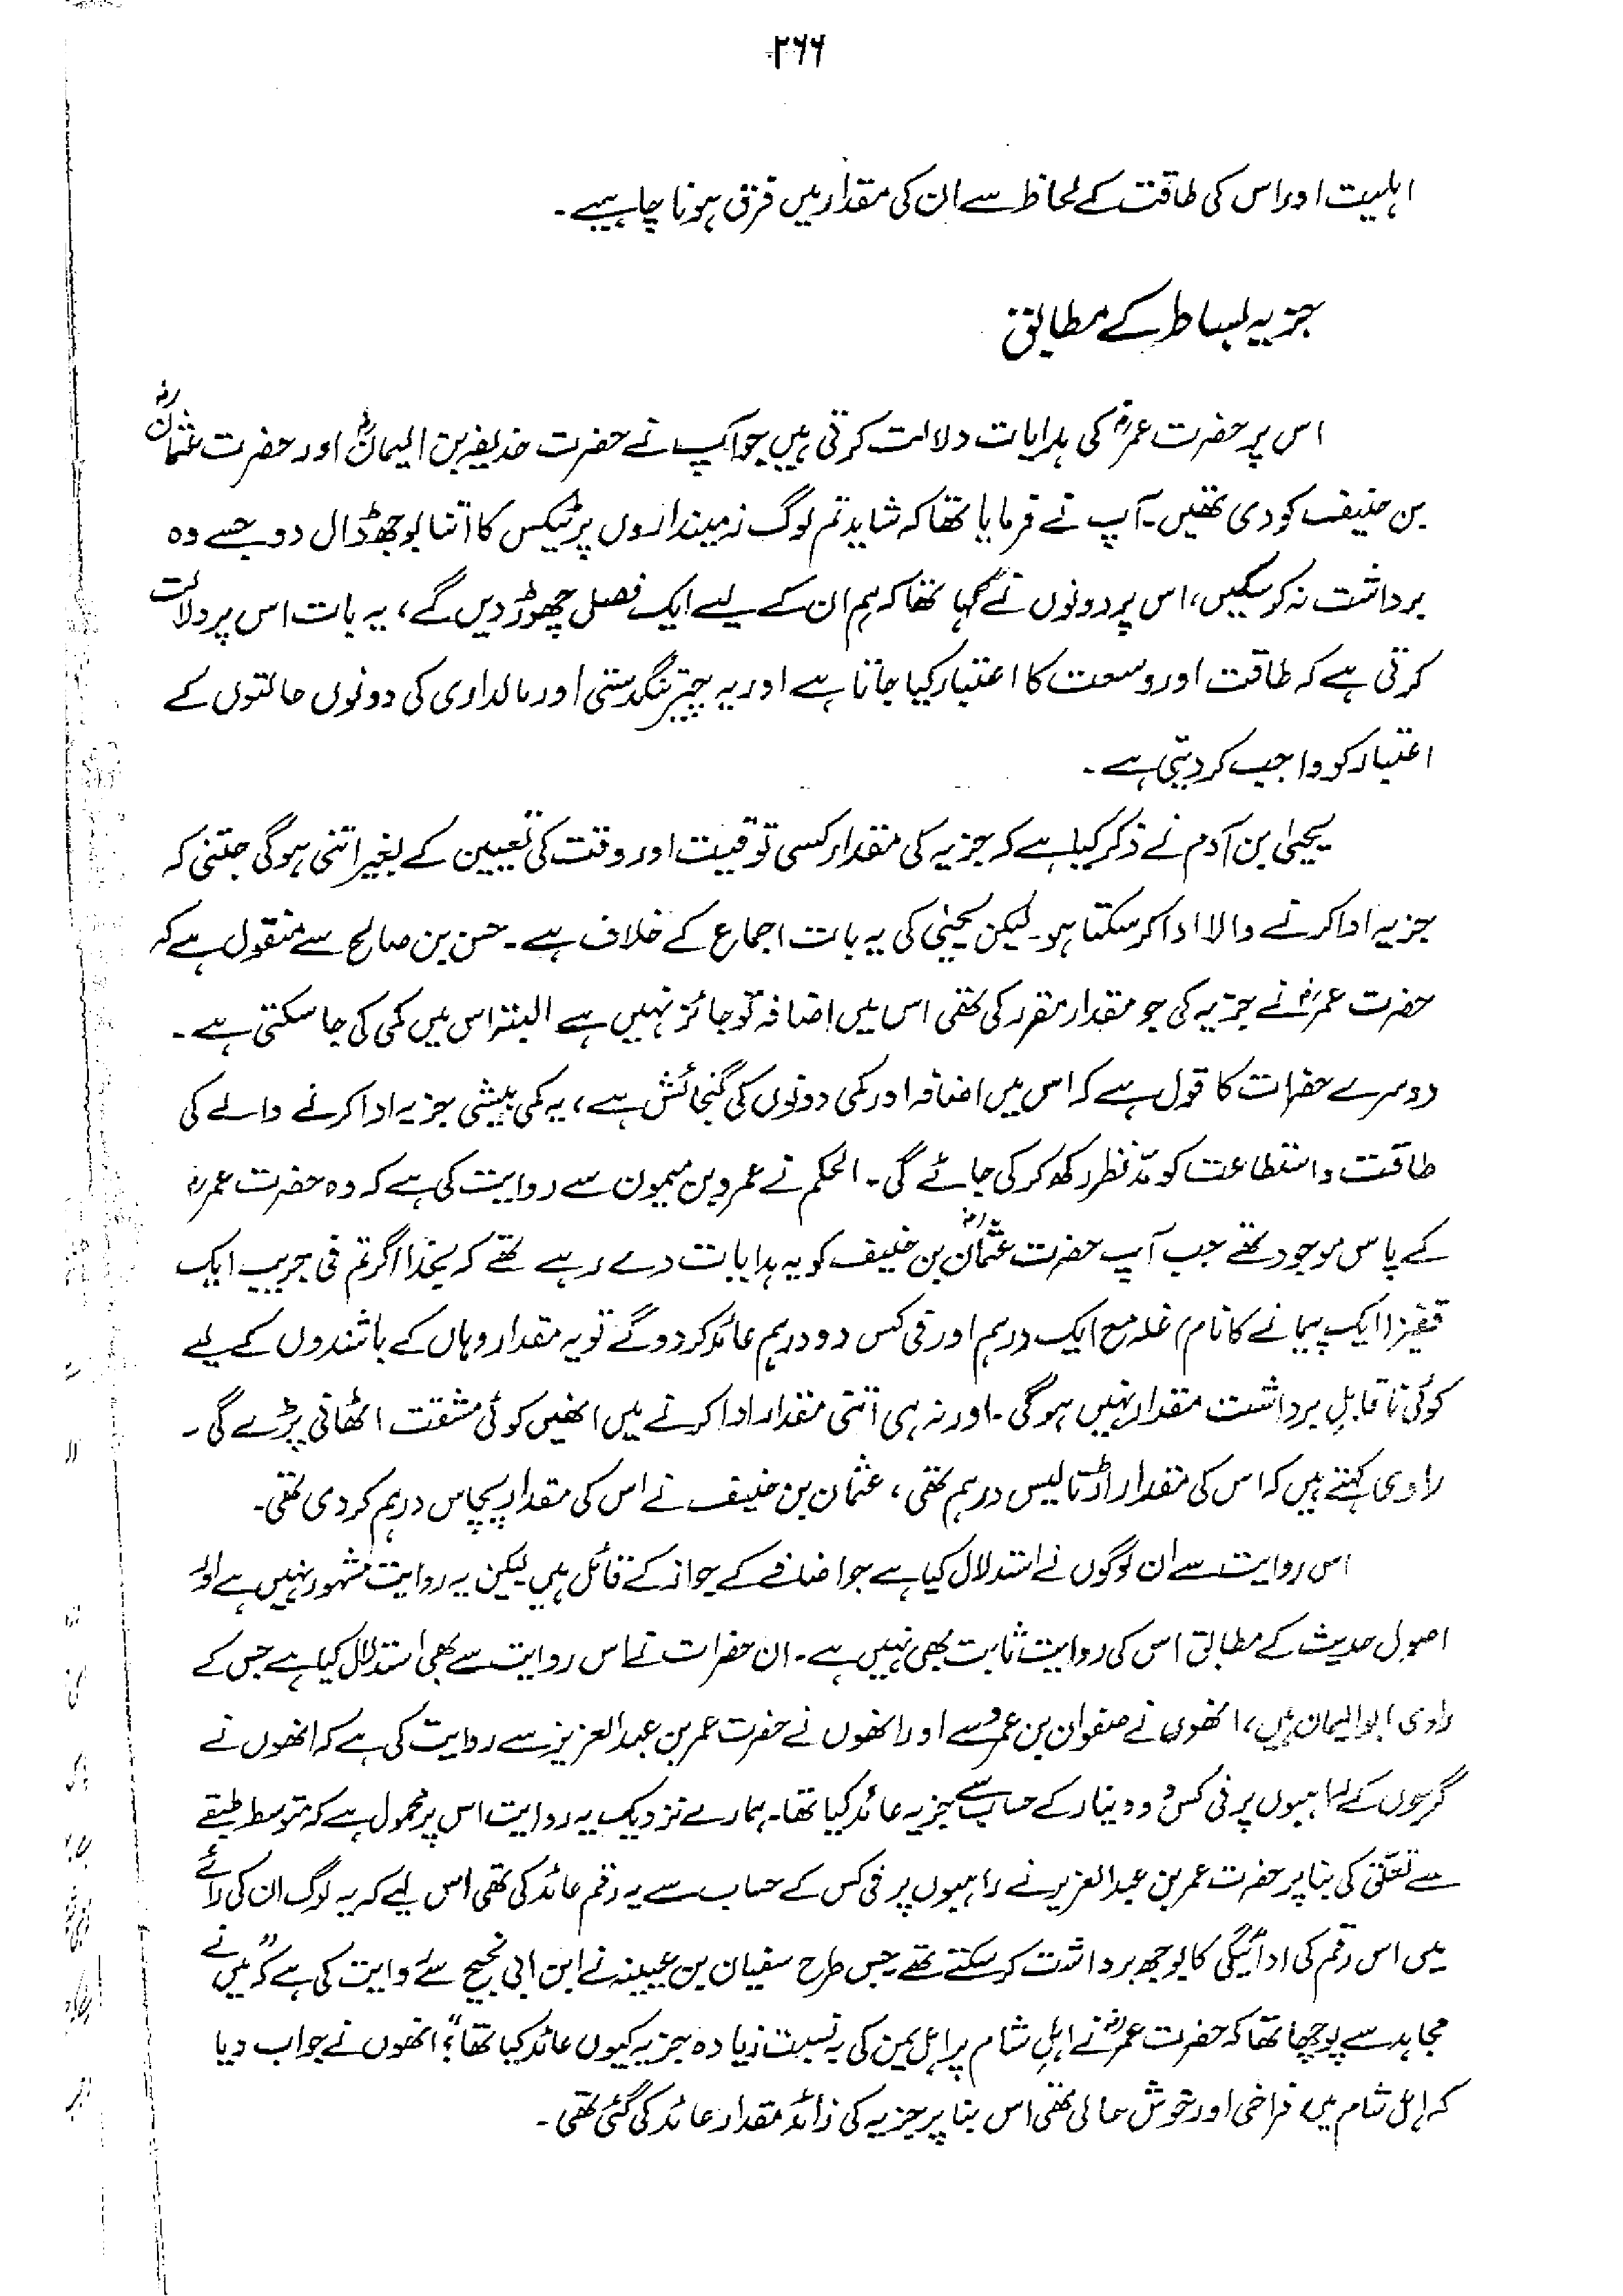 ۲۶۶
اہلیت اور اس کی طاقت کے لحاظ سے ان کی مقدار میں فرق ہونا چاہیے۔
جزیہ بساط کے مطابق
اس پر حضرت عمرؓ کی ہدایات دلالت کرتی ہیں جو آپ نے حضرت حذیفہ بن الیمانؓ اور حضرت عثمانؓ
بن حنیف کو دی تھیں۔ آپ نے فرمایا تھا کہ شاید تم لوگ زمینداروں پر ٹیکس کا اتنا بوجھ ڈال دو جسے وہ
برداشت نہ کر سکیں، اس پر دونوں نے کہا تھا کہ ہم ان کے لیے ایک فصل چھوڑ دیں گے، یہ بات اس پر دلالت
کرتی ہے کہ طاقت اور وسعت کا اعتبار کیا جاتا ہے اور یہ چیز تنگدستی اور مالداری کی دونوں حالتوں کے
اعتبار کو واجب کر دیتی ہے۔
یحییٰ بن آدم نے ذکر کیا ہے کہ جزیہ کی مقدار کسی توقیت اور وقت کی تعیین کے بغیر اتنی ہو گی جتنی کہ
جزیہ ادا کرنے والا ادا کر سکتا ہو۔ لیکن یحییٰ کی یہ بات اجماع کے خلاف ہے۔ حسن بن صالح سے منقول ہے کہ
حضرت عمرؓ نے جزیہ کی جو مقدار مقرر کی تھی اس میں اضافہ تو جائز نہیں ہے البتہ اس میں کمی کی جا سکتی ہے۔
دوسرے حضرات کا قول ہے کہ اس میں اضافہ اور کمی دونوں کی گنجائش ہے، یہ کمی بیشی جزیہ ادا کرنے والے کی
طاقت و استطاعت کو مدّنظر رکھ کر کی جائے گی۔ الحکم نے عمرو بن میمون سے روایت کی ہے کہ وہ حضرت عمرؓ
کے پاس موجود تھے جب آپ حضرت عثمانؓ بن حنیف کو یہ ہدایات دے رہے تھے کہ بخدا اگر تم فی جریب ایک
قفیز (ایک پیمانے کا نام) غلہ مع ایک درہم اور فی کس دو درہم عائد کر دو گے تو یہ مقدار وہاں کے باشندوں کے لیے
کوئی ناقابلِ برداشت مقدار نہیں ہو گی۔ اور نہ ہی اتنی مقدار ادا کرنے میں انھیں کوئی مشقت اٹھانی پڑے گی۔
راوی کہتے ہیں کہ اس کی مقدار اڑتالیس درہم تھی، عثمان بن حنیف نے اس کی مقدار پچاس درہم کر دی تھی۔
اس روایت سے ان لوگوں نے استدلال کیا ہے جو اضافے کے جواز کے قائل ہیں لیکن یہ روایت مشہور نہیں ہے اور
اصول حدیث کے مطابق اس کی روایت ثابت بھی نہیں ہے۔ ان حضرات نے اس روایت سے بھی استدلال کیا ہے جس کے
راوی ابو الیمان ہیں، انھوں نے صفوان بن عمرو سے اور انھوں نے حضرت عمر بن عبدالعزیز سے روایت کی ہے کہ انھوں نے
گرجوں کے راہبوں پر فی کس دو دینار کے حساب سے جزیہ عائد کیا تھا۔ ہمارے نزدیک یہ روایت اس پر محمول ہے کہ متوسط طبقے
سے تعلّق کی بنا پر حضرت عمر بن عبدالعزیز نے راہبوں پر فی کس کے حساب سے یہ رقم عائد کی تھی اس لیے کہ یہ لوگ ان کی رائے
میں اس رقم کی ادائیگی کا بوجھ برداشت کر سکتے تھے جس طرح سفیان بن عیینہ نے ابن ابی نجیح سے روایت کی ہے کہ "میں نے
مجاہد سے پوچھا تھا کہ حضرت عمرؓ نے اہلِ شام پر اہل یمن کی بہ نسبت زیادہ جزیہ کیوں عائد کیا تھا"؟ انھوں نے جواب دیا
کہ اہل شام میں فراخی اور خوش حالی تھی اس بنا پر جزیہ کی زائد مقدار عائد کی گئی تھی۔